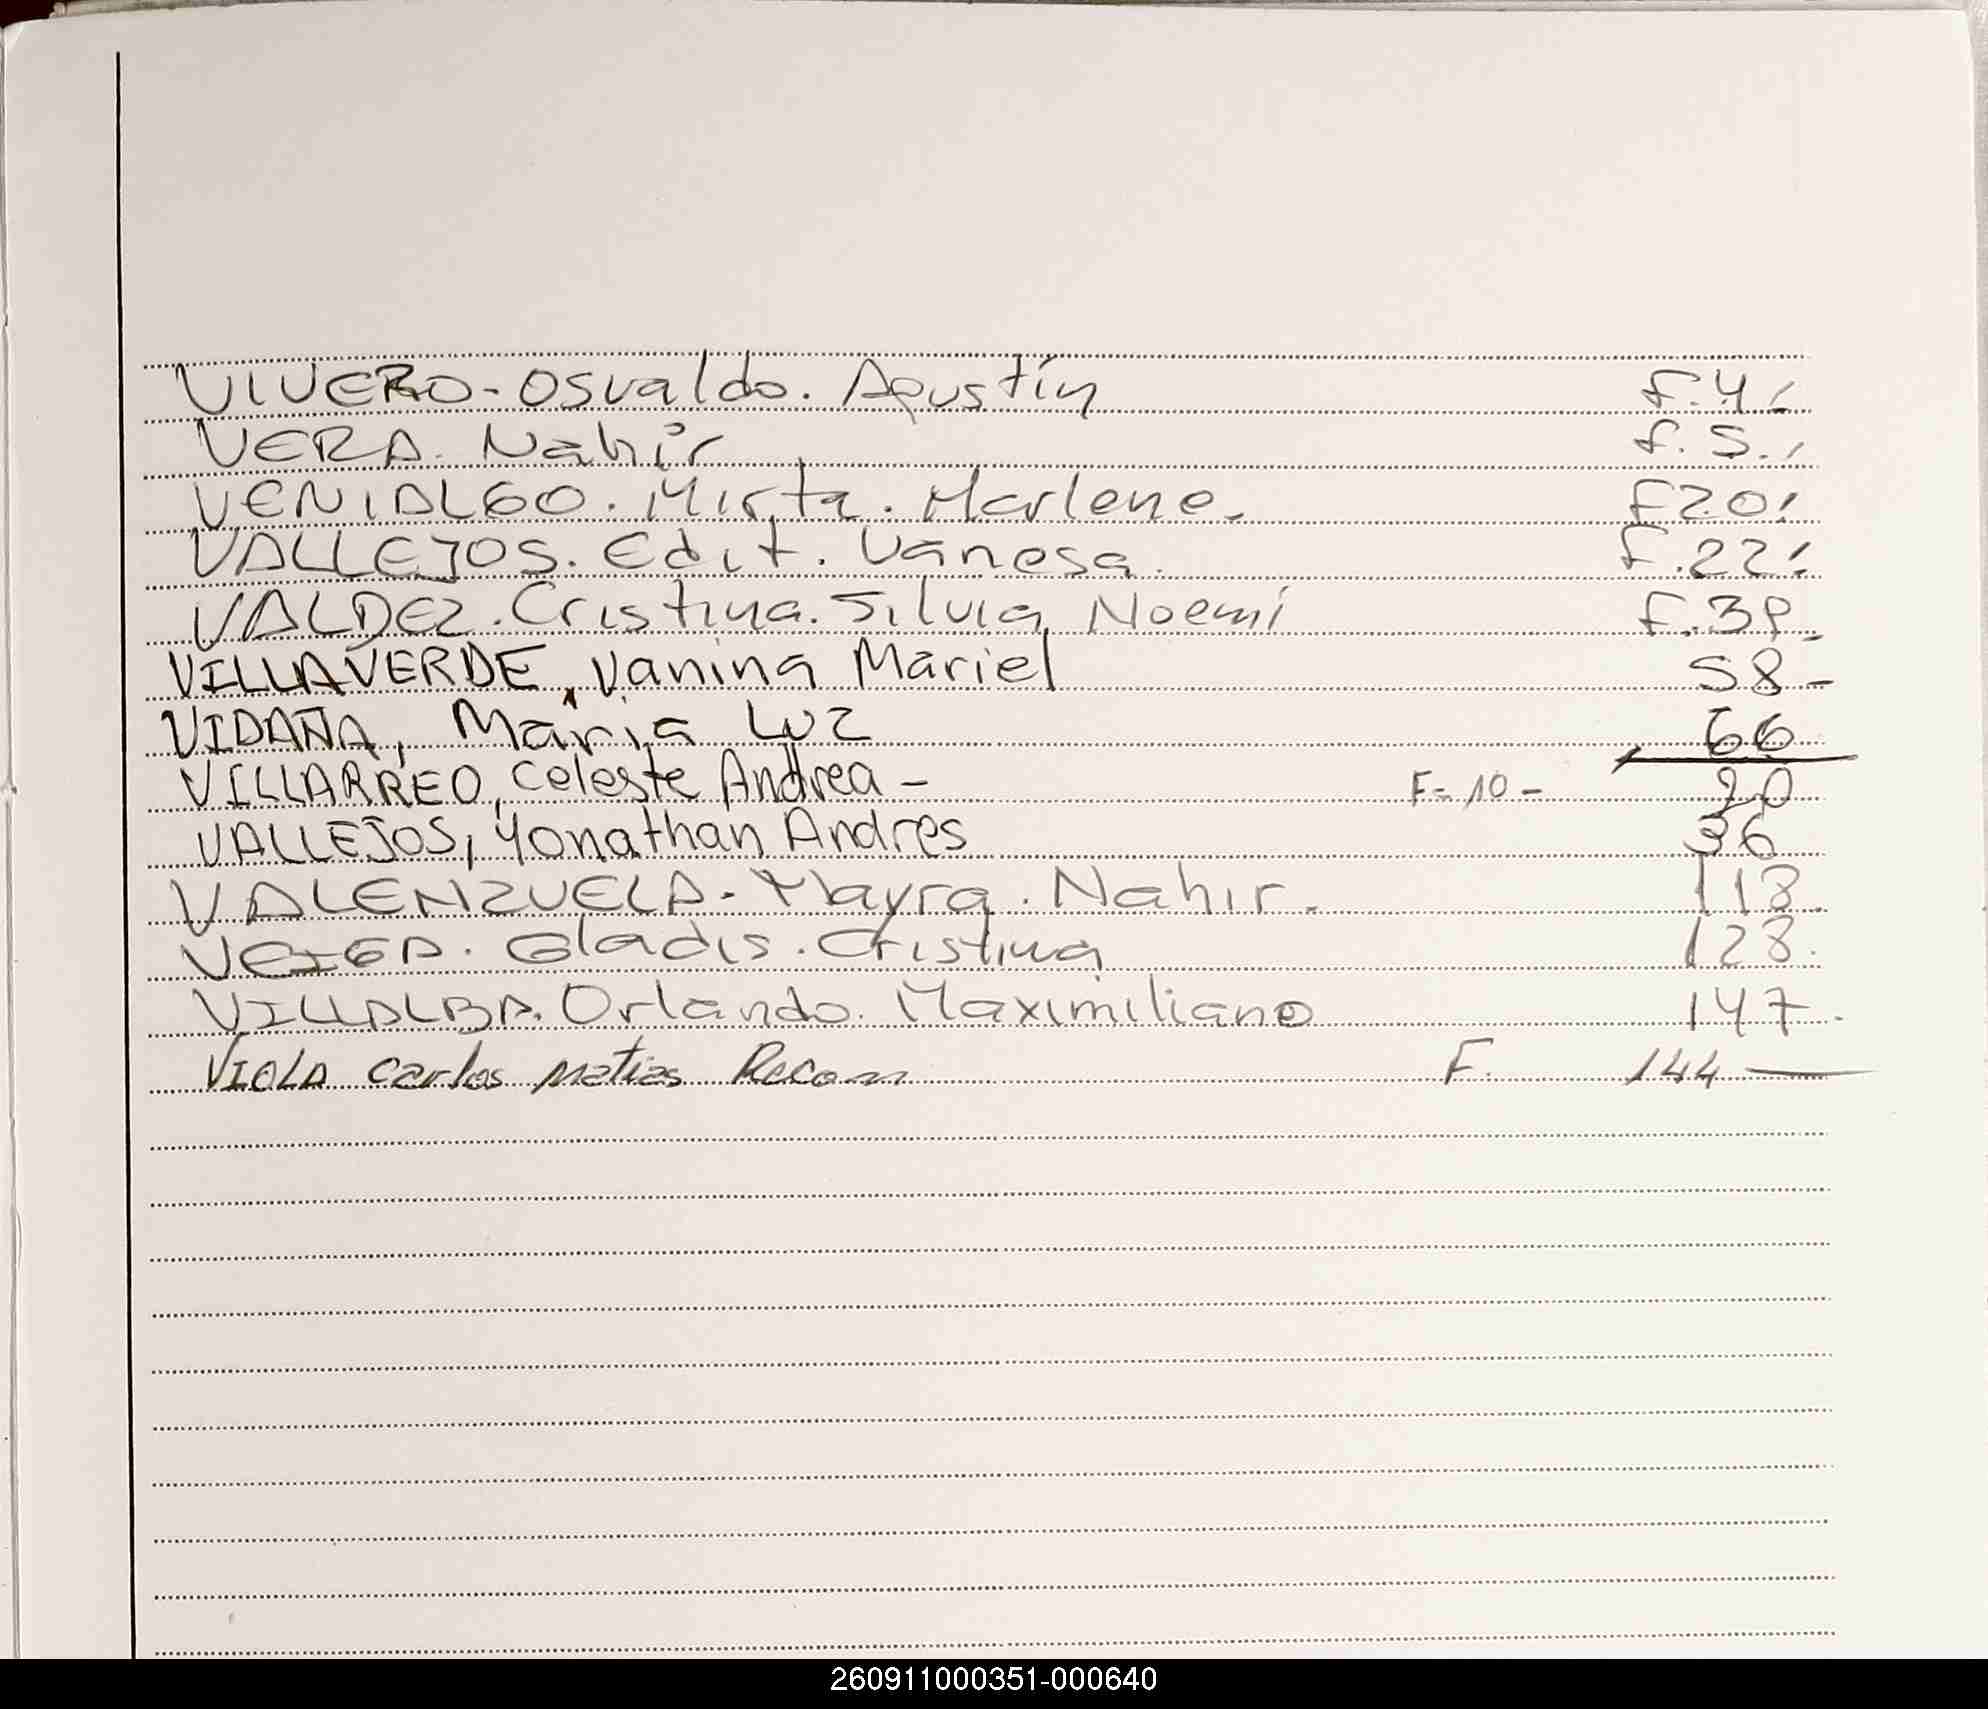 VIVERO - Osvaldo. Agustín f. 4.
VERA. Nahir f. 5.
VENIALGO. Mirta. Marlene. f 20.
VALLEJOS. Edit. Vanesa. f. 22.
VALDEZ. Cristina. Silvia Noemi f. 39.
VILLAVERDE, Vanina Mariel 58 -
VIDAÑA, Maria Luz 66
VILLARREO, Celeste Andrea - F- 10 - 90
VALLEJOS, Yonathan Andres 36
VALENZUELA. Mayra. Nahir. 118.
VEIGA. Gladis. Cristina 128.
VILLALBA. Orlando. Maximiliano 147.
VIOLA Carlos Matias Recon F. 144 —
260911000351-000640